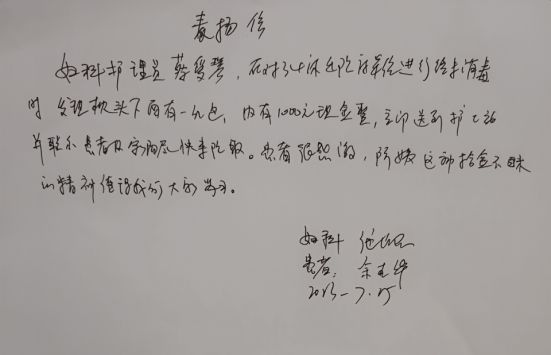 表扬信
妇科护理员蔡爱琴,在对34床出院病单位进行终末消毒
时发现枕头下面有一钱包,内有1000元现金整,立即送到护士站
并联系患者及家属尽快来院取。患者很感激,阿姨这种拾金不昧
的精神值得我们大家学习。
妇科
患者:余
2023-7.25